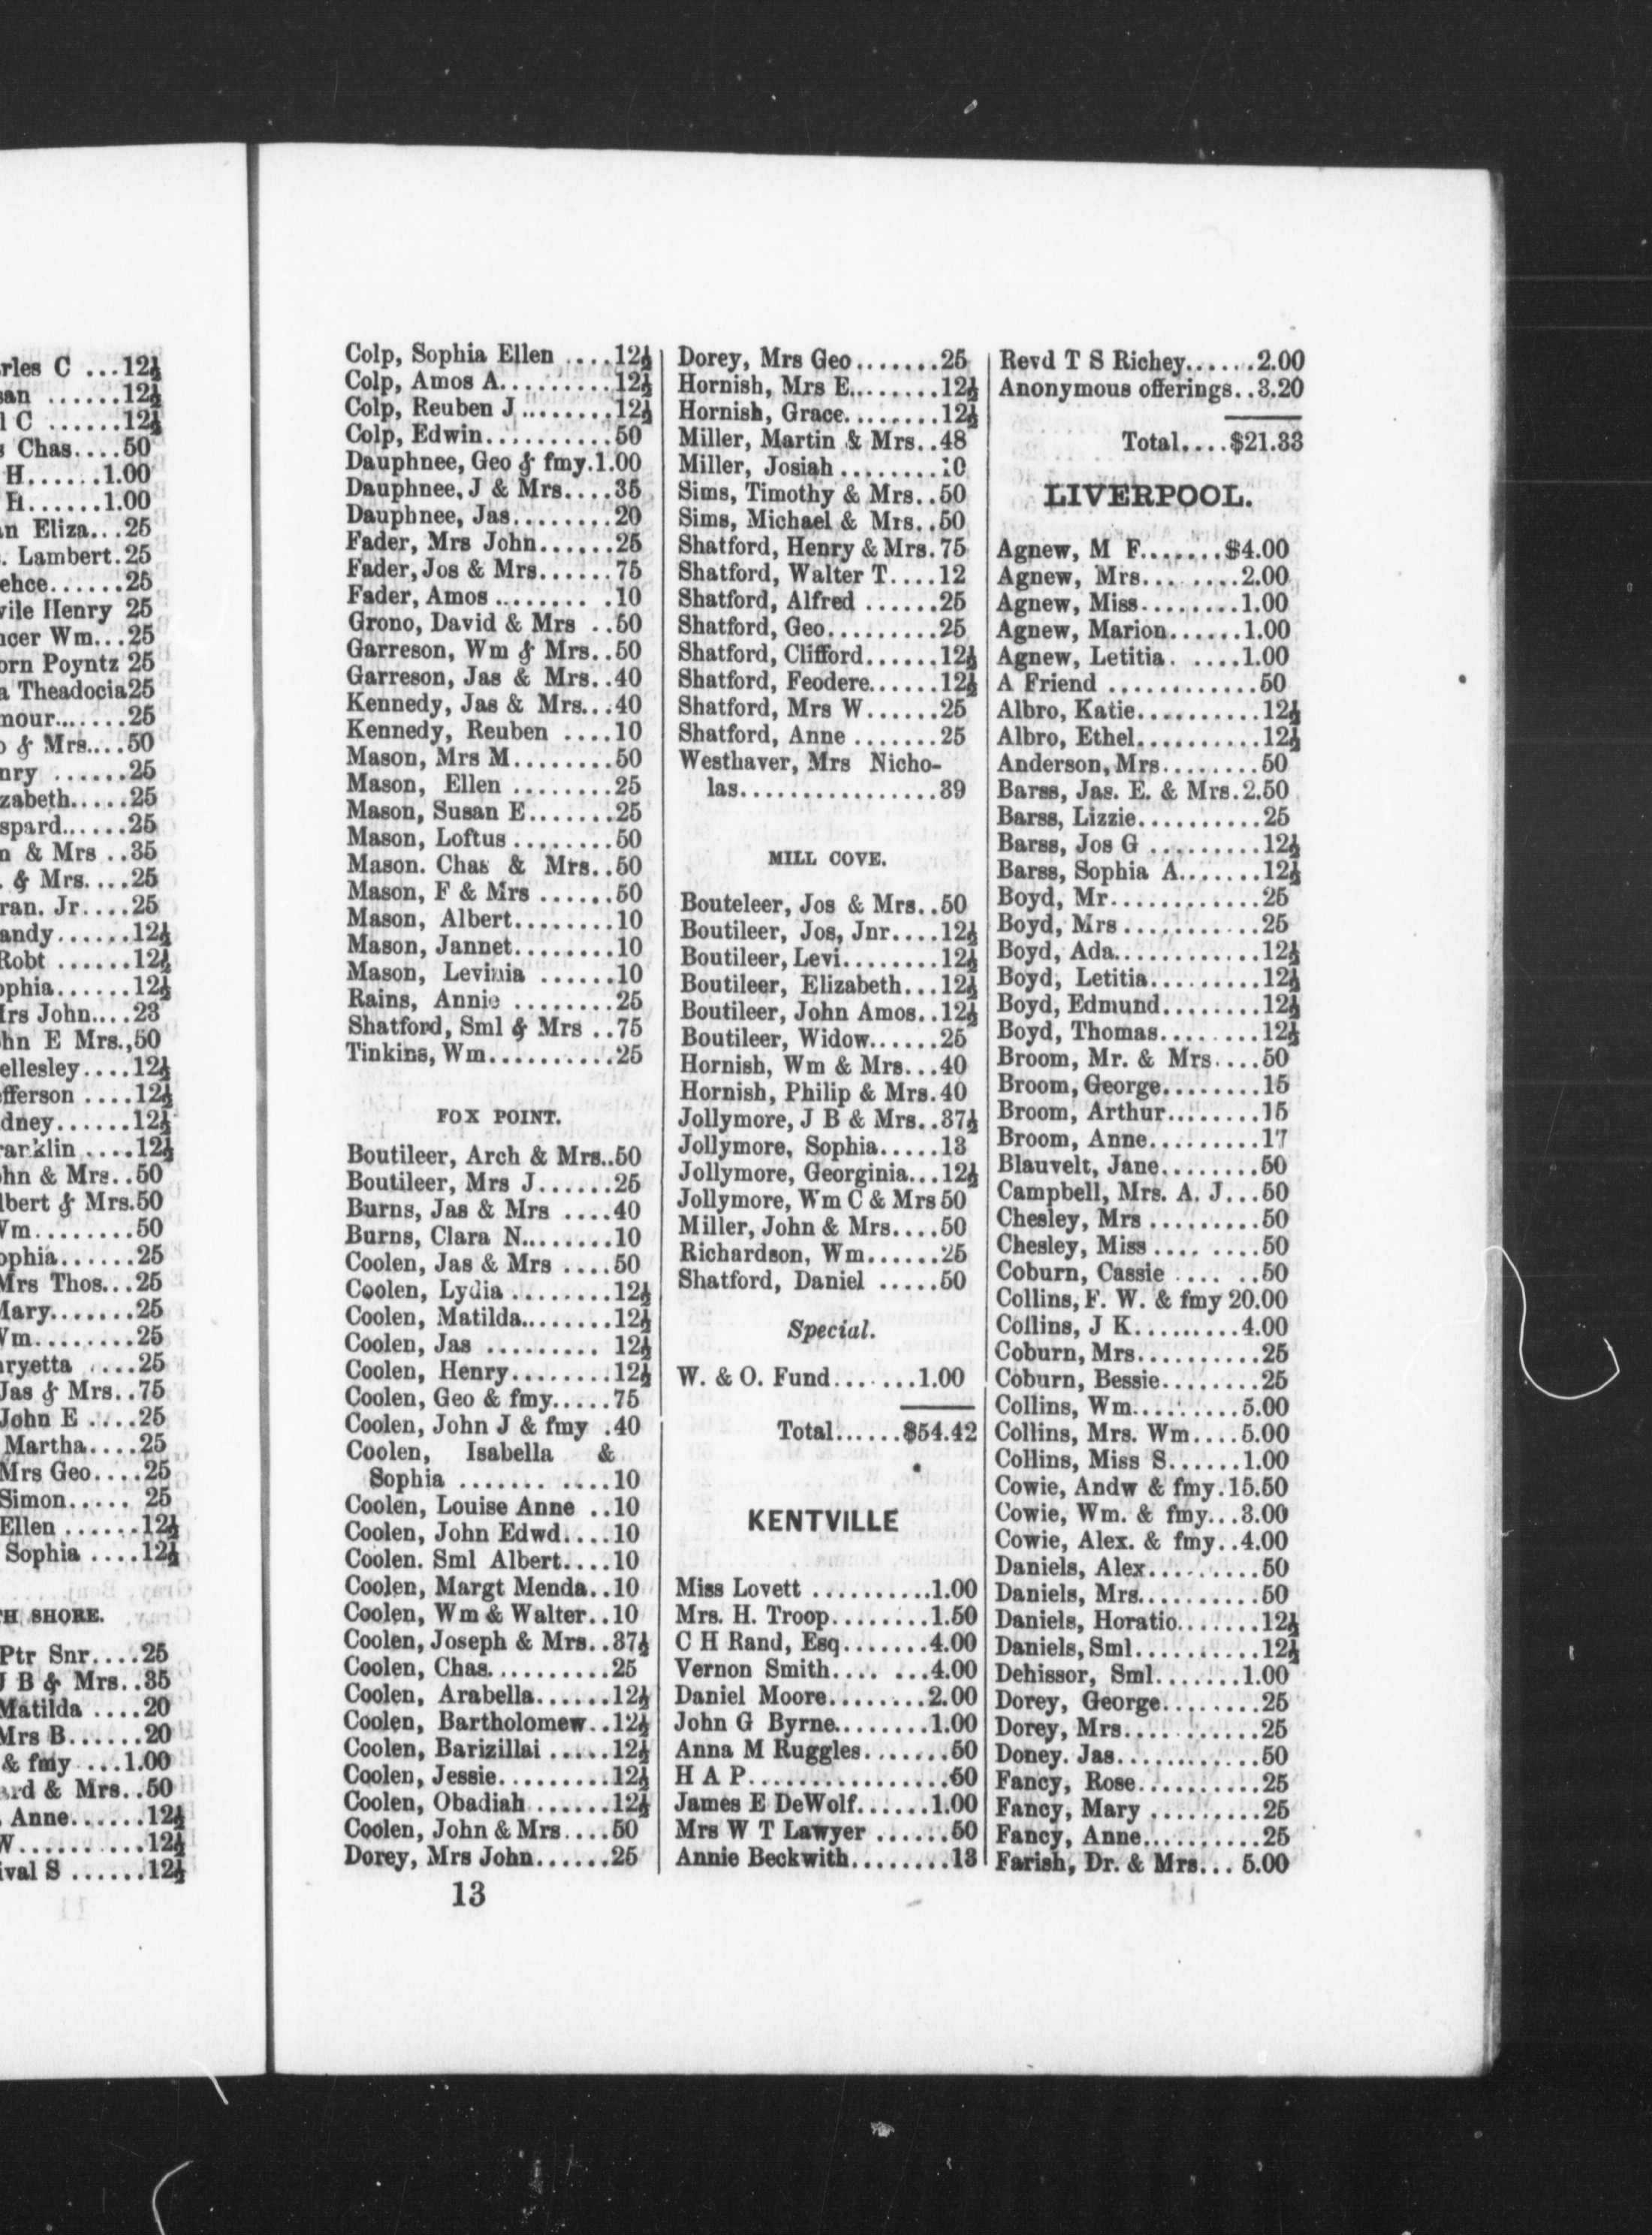 rles C ...12½
san ......12½
l C ......12½
s Chas....50
H......1.00
H......1.00
an Eliza...25
. Lambert.25
ehce......25
vile Henry 25
ncer Wm...25
orn Poyntz 25
a Theadocia25
mour......25
o & Mrs....50
nry ......25
zabeth.....25
spard......25
n & Mrs ..35
. & Mrs....25
ran. Jr....25
andy......12½
Robt ......12½
ophia......12½
Mrs John....23
ohn E Mrs.,50
ellesley....12½
efferson ....12½
dney......12½
ranklin ....12½
ohn & Mrs..50
lbert & Mrs.50
Wm........50
ophia.......25
Mrs Thos...25
Mary.......25
Wm.........25
aryetta ....25
Jas & Mrs..75
John E ....25
Martha....25
Mrs Geo....25
Simon..... 25
Ellen ......12½
Sophia ....12½
TH SHORE.
Ptr Snr....25
J B & Mrs..35
Matilda ....20
Mrs B......20
& fmy ....1.00
ard & Mrs..50
Anne......12½
W..........12½
ival S ......12½
Colp, Sophia Ellen ....12½
Colp, Amos A.........12½
Colp, Reuben J ........12½
Colp, Edwin..........50
Dauphnee, Geo & fmy.1.00
Dauphnee, J & Mrs....35
Dauphnee, Jas........20
Fader, Mrs John......25
Fader, Jos & Mrs......75
Fader, Amos ........ .10
Grono, David & Mrs ..50
Garreson, Wm & Mrs..50
Garreson, Jas & Mrs..40
Kennedy, Jas & Mrs...40
Kennedy, Reuben ....10
Mason, Mrs M........50
Mason, Ellen ........25
Mason, Susan E.......25
Mason, Loftus ........50
Mason. Chas & Mrs..50
Mason, F & Mrs ......50
Mason, Albert........10
Mason, Jannet.........10
Mason, Levinia ......10
Rains, Annie ........25
Shatford, Sml & Mrs ..75
Tinkins, Wm..........25
FOX POINT.
Boutileer, Arch & Mrs..50
Boutileer, Mrs J......25
Burns, Jas & Mrs ....40
Burns, Clara N........10
Coolen, Jas & Mrs ....50
Coolen, Lydia ........12½
Coolen, Matilda........12½
Coolen, Jas ......... 12½
Coolen, Henry........12½
Coolen, Geo & fmy.....75
Coolen, John J & fmy .40
Coolen, Isabella &
Sophia ....... ....10
Coolen, Louise Anne ..10
Coolen, John Edwd....10
Coolen. Sml Albert....10
Coolen, Margt Menda..10
Coolen, Wm & Walter..10
Coolen, Joseph & Mrs..37½
Coolen, Chas..........25
Coolen, Arabella......12½
Coolen, Bartholomew..12½
Coolen, Barizillai .....12½
Coolen, Jessie.........12½
Coolen, Obadiah ......12½
Coolen, John & Mrs....50
Dorey, Mrs John......25
13
Dorey, Mrs Geo.......25
Hornish, Mrs E........12½
Hornish, Grace........12½
Miller, Martin & Mrs..48
Miller, Josiah ........10
Sims, Timothy & Mrs..50
Sims, Michael & Mrs..50
Shatford, Henry & Mrs.75
Shatford, Walter T....12
Shatford, Alfred ......25
Shatford, Geo.........25
Shatford, Clifford......12½
Shatford, Feodere......12½
Shatford, Mrs W......25
Shatford, Anne .......25
Westhaver, Mrs Nicho-
las.................39
MILL COVE.
Bouteleer, Jos & Mrs..50
Boutileer, Jos, Jnr....12½
Boutileer, Levi........12½
Boutileer, Elizabeth...12½
Boutileer, John Amos..12½
Boutileer, Widow......25
Hornish, Wm & Mrs...40
Hornish, Philip & Mrs.40
Jollymore, J B & Mrs..37½
Jollymore, Sophia.....13
Jollymore, Georginia...12½
Jollymore, Wm C & Mrs 50
Miller, John & Mrs....50
Richardson, Wm......25
Shatford, Daniel .....50
Special.
W. & O. Fund.......1.00
Total......$54.42
KENTVILLE
Miss Lovett ..........1.00
Mrs. H. Troop........1.50
C H Rand, Esq.......4.00
Vernon Smith.... ...4.00
Daniel Moore........2.00
John G Byrne........1.00
Anna M Ruggles.......50
H A P................50
James E DeWolf......1.00
Mrs W T Lawyer ......50
Annie Beckwith........13
Revd T S Richey......2.00
Anonymous offerings..3.20
Total....$21.33
LIVERPOOL.
Agnew, M F.......$4.00
Agnew, Mrs... .....2.00
Agnew, Miss.........1.00
Agnew, Marion......1.00
Agnew, Letitia. .....1.00
A Friend ............50
Albro, Katie..........12½
Albro, Ethel..........12½
Anderson, Mrs........50
Barss, Jas. E. & Mrs.2.50
Barss, Lizzie..........25
Barss, Jos G .........12½
Barss, Sophia A.......12½
Boyd, Mr............25
Boyd, Mrs ...........25
Boyd, Ada............12½
Boyd, Letitia.........12½
Boyd, Edmund........12½
Boyd, Thomas........12½
Broom, Mr. & Mrs....50
Broom, George........15
Broom, Arthur........15
Broom, Anne.........17
Blauvelt, Jane........50
Campbell, Mrs. A. J...50
Chesley, Mrs .........50
Chesley, Miss .... ....50
Coburn, Cassie .... ..50
Collins, F. W. & fmy 20.00
Collins, J K.........4.00
Coburn, Mrs..........25
Coburn, Bessie........25
Collins, Wm.........5.00
Collins, Mrs. Wm....5.00
Collins, Miss S......1.00
Cowie, Andw & fmy.15.50
Cowie, Wm. & fmy...3.00
Cowie, Alex. & fmy..4.00
Daniels, Alex.........50
Daniels, Mrs..........50
Daniels, Horatio.......12½
Daniels, Sml..........12½
Dehissor, Sml.......1.00
Dorey, George........25
Dorey, Mrs...........25
Doney. Jas............50
Fancy, Rose..........25
Fancy, Mary .........25
Fancy, Anne..........25
Farish, Dr. & Mrs... 5.00